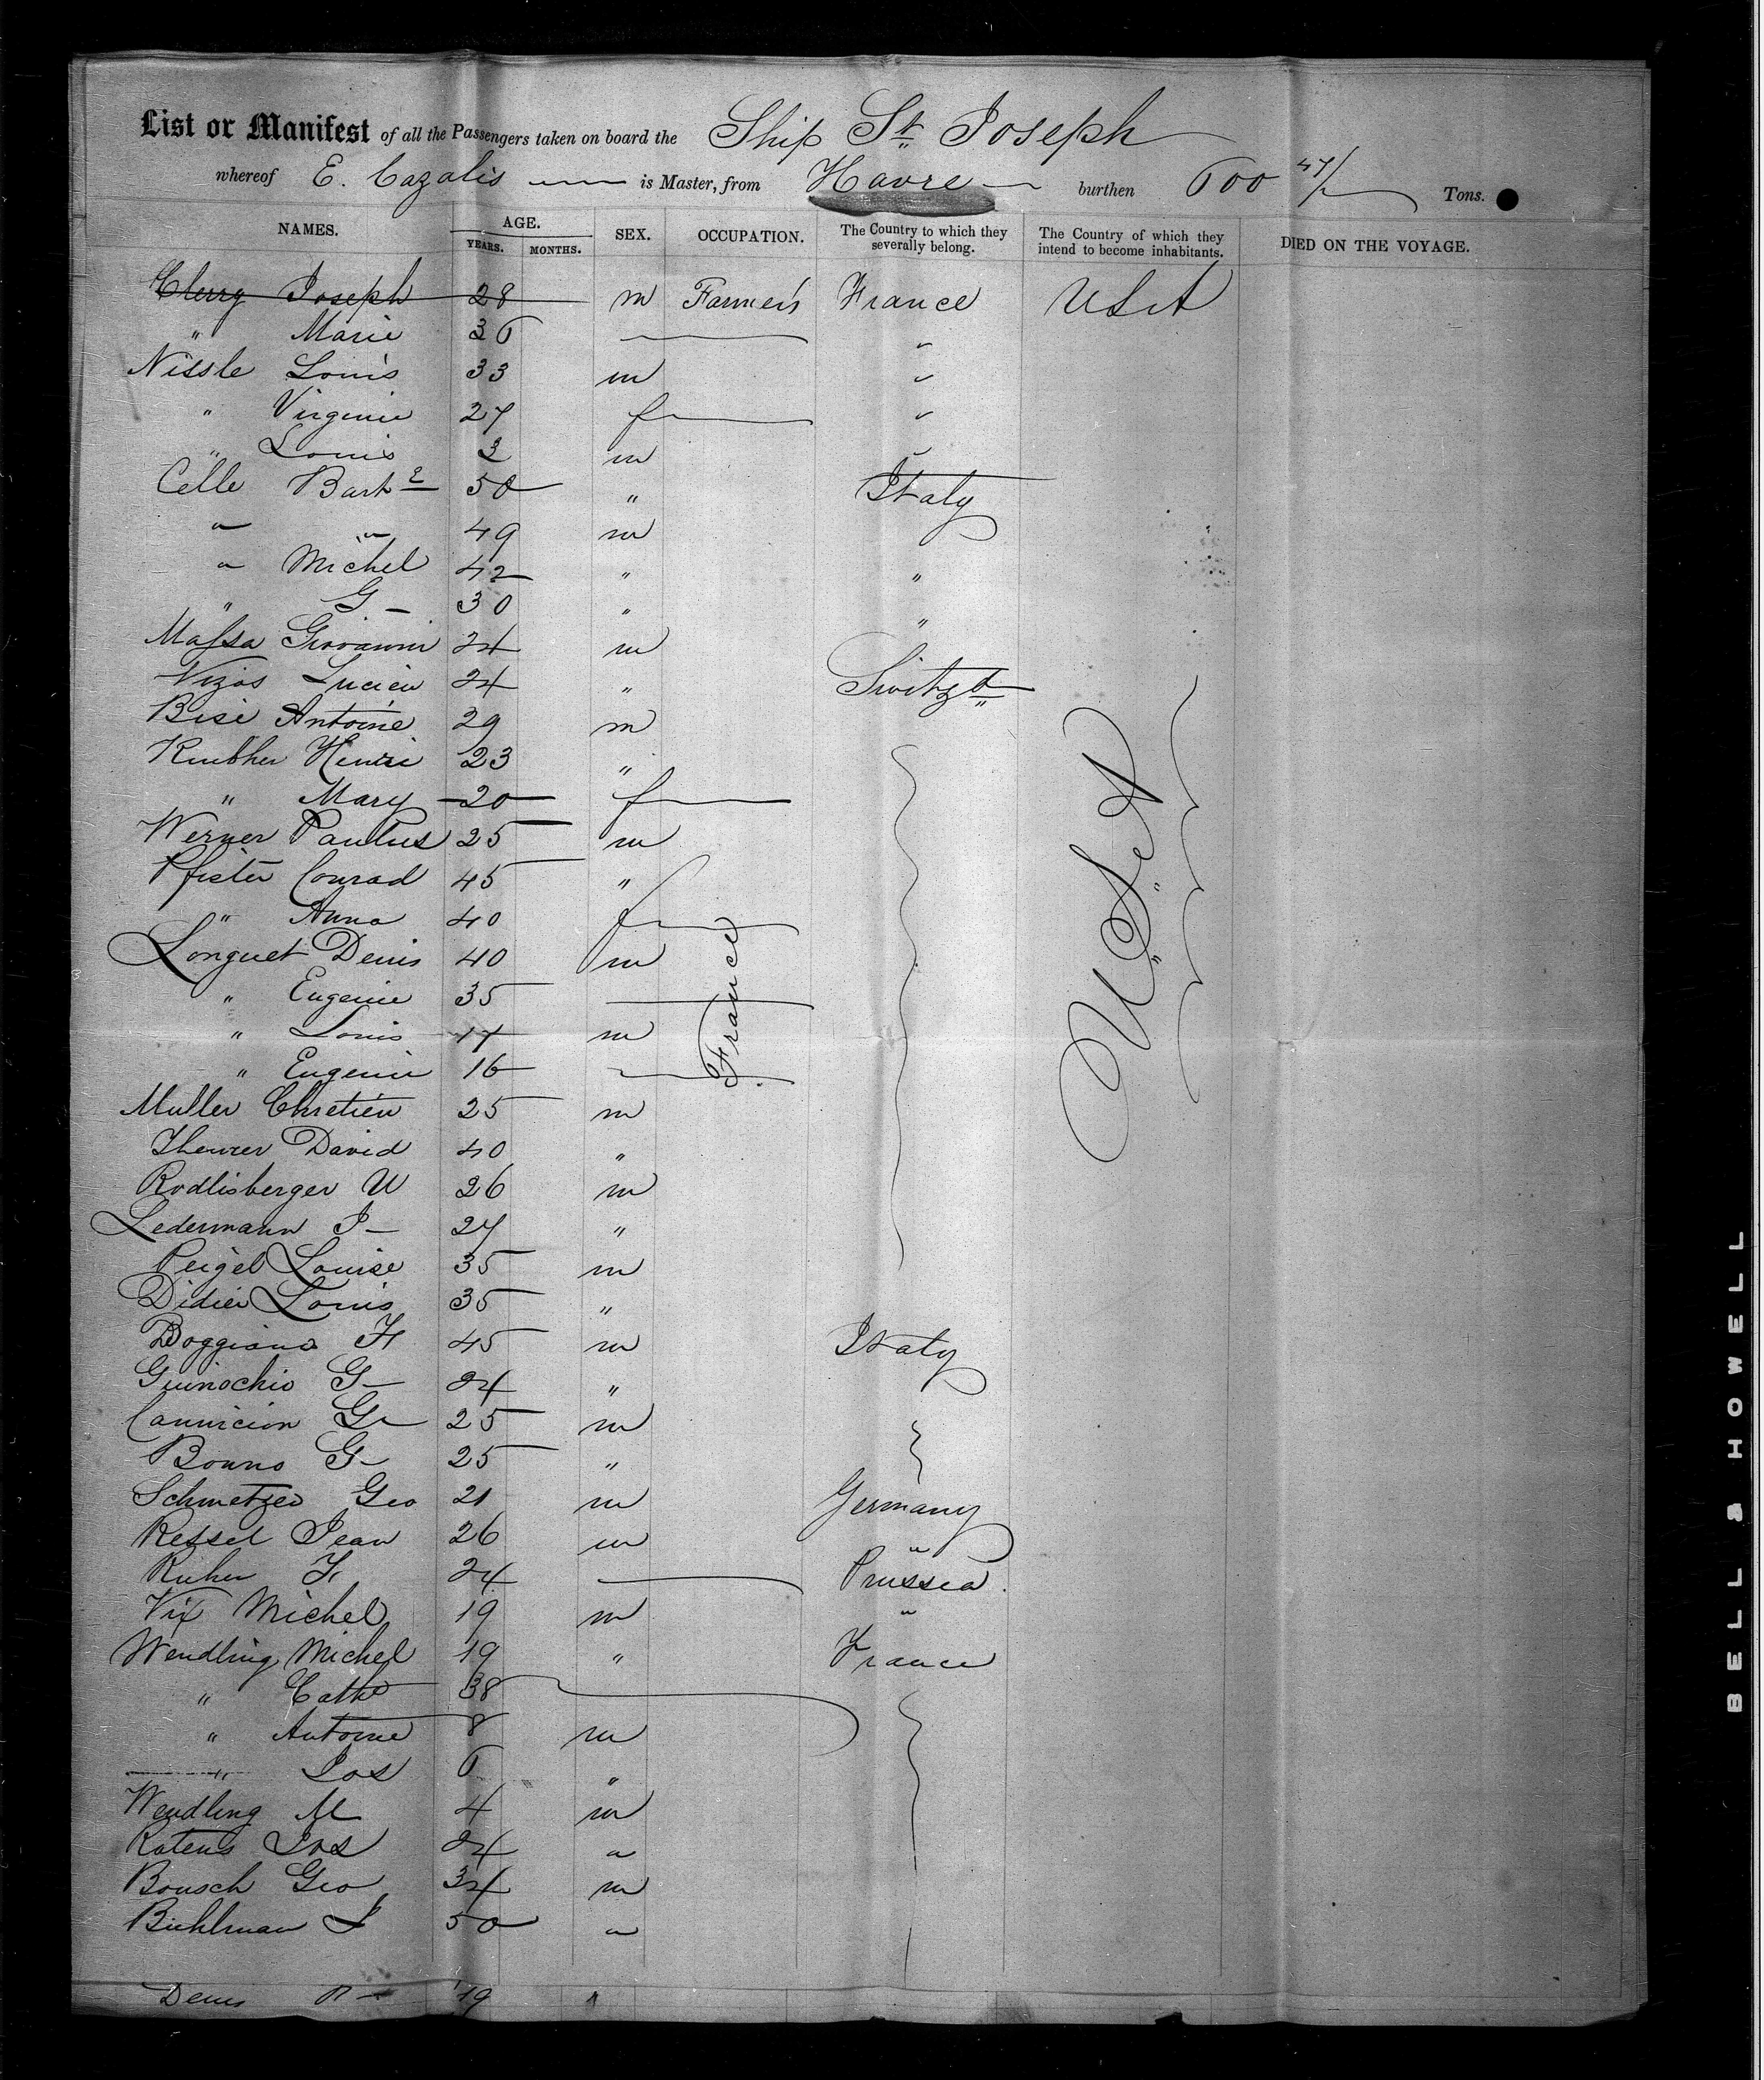 List or Manifest of all the Passengers taken on board the Ship St Joseph
whereof E. Cazalis is Master, from Havre burthen 600 47/ Tons.
NAMES. AGE. SEX. OCCUPATION. The Country to which they severally belong. The Country of which they intend to become inhabitants. DIED ON THE VOYAGE.
YEARS. MONTHS.
Clerry Joseph 28 m Farmers France USA
" Marie 36 "
Nissle Louis 33 m "
" Virginie 27 f "
" Louis 3 m "
Celle Bart 50 " Italy
" " 49 m
" Michel 42 " "
" G 30 " "
Massa Giovanni 24 m
Vizos Lucien 24 " Switzd
Bise Antoine 29 m
Henri 23 "
" Mary 20 f
Werner Paulus 25 m
Pfister Conrad 45 "
" Anna 40 f
Longuet Denis 40 m France
" Eugenie 35
" Louis 17 m
" Eugenie 16
U.S.A
Muller Chretien 25 m
Theurer David 40 "
Rodlisberger U 26 m
Ledermann J 27 "
Peigel Louise 35 m
Didier Louis 35 "
Boggiano F 45 m Italy
Guinochio G 24 "
G 25 m
Bonno G 25 "
Schmetzer Geo 21 m Germany
Kessel Jean 26 m "
24 Prussia
Vix Michel 19 m "
Wendling Michel 19 " France
" Cathe 38
" Antoine 8 m
" Jos 6 "
Wendling M 4 m
Jos 24 "
Bousch Geo 34 m
Buhlman J 50 "
Denis 19
BELL & HOWELL